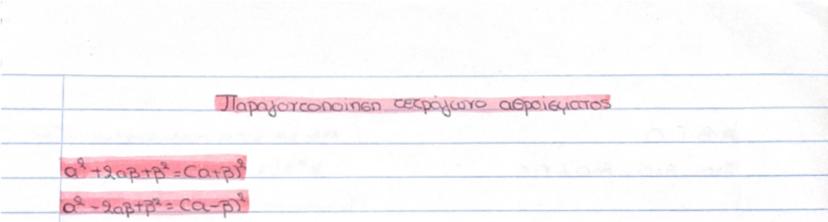 Παραγοντοποίηση τετράγωνο αθροίσματος
α² + 2αβ + β² = (α+β)²
α² - 2αβ + β² = (α-β)²